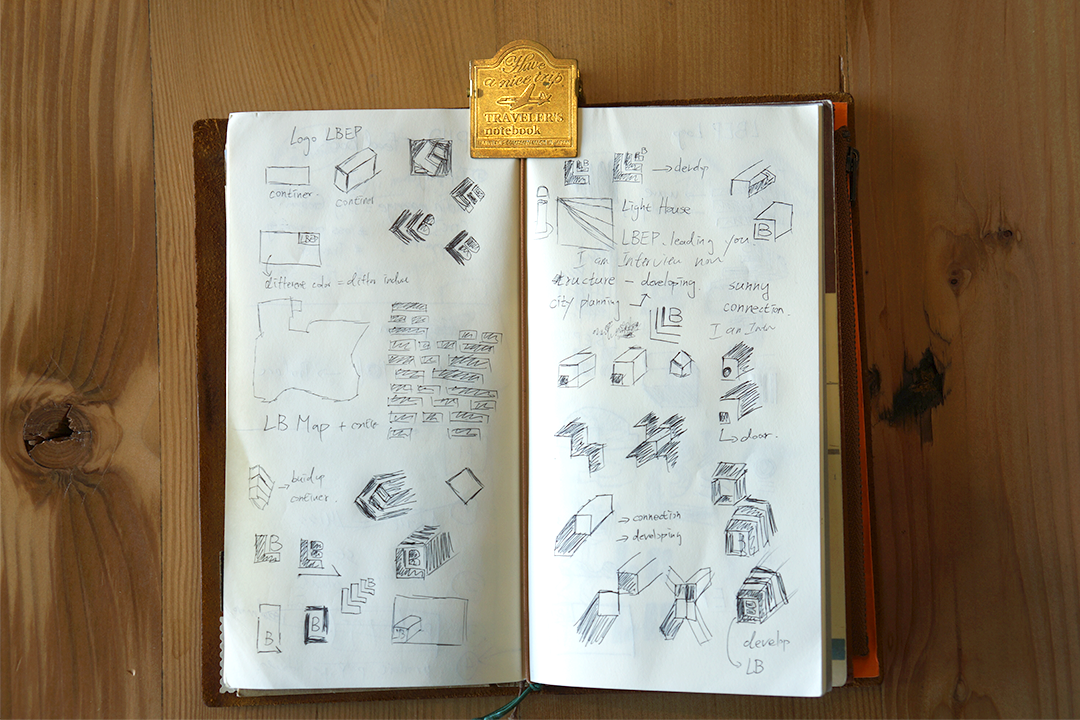 Have
a nice trip
TRAVELER'S
notebook
Logo LBEP
continer.
continer
LBEP
different color = differ indus
LB Map +
→ buildup
continer.
B
LB
B
LB
B
B
→ develop
Light House
B
LBEP. leading you
I am Interview now
structure - developing.
city planning
sunny
connection.
LB
I am Inter
↳ door.
→ connection
→ developing
B
B
develop
LB